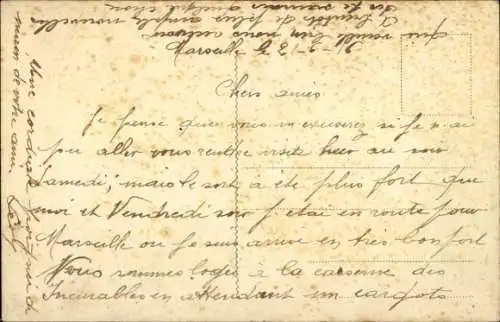 Marseille 31-3-1915
Chers amis
Je pense que vous m'excuserez si je n'ai
pu aller vous rendre visite hier au soir
Samedi, mais le sort a été plus fort que
moi et Vendredi soir j'etai en route pour
Marseille ou je suis arrivé en tres bon fort
Nous sommes logés à la caserne des
Incurables en attendant un cargots
que veuille bien nous
A bientôt de plus amples nouvelles
Une cordiale poignée de
main de votre ami